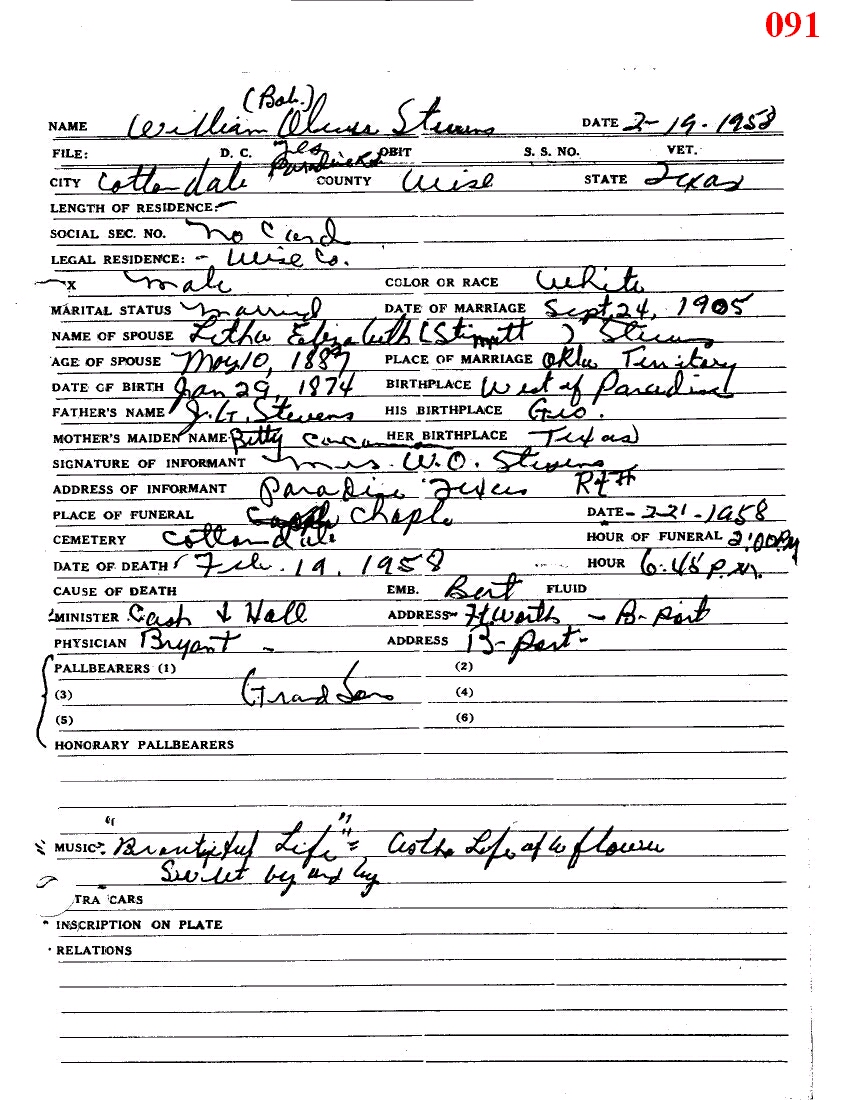 091
(Bob.)
NAME William Oliver Stevens DATE 2-19-1958
FILE: D. C. Yes OBIT S. S. NO. VET.
Paradise Rd
CITY Cottondale COUNTY Wise STATE Texas
LENGTH OF RESIDENCE:
SOCIAL SEC. NO. No Card
LEGAL RESIDENCE: - Wise Co.
X male COLOR OR RACE White
MARITAL STATUS Married DATE OF MARRIAGE Sept. 24, 1905
NAME OF SPOUSE Litha Elizabeth (Stimatt ) Stevens
AGE OF SPOUSE May 10, 1887 PLACE OF MARRIAGE Okla Territory
DATE OF BIRTH Jan 29, 1874 BIRTHPLACE West of Paradise
FATHER'S NAME J.G. Stevens HIS BIRTHPLACE Geo.
MOTHER'S MAIDEN NAME Betty HER BIRTHPLACE Texas
SIGNATURE OF INFORMANT Mrs. W.O. Stevens
ADDRESS OF INFORMANT Paradise Texas
PLACE OF FUNERAL Chaple DATE- 2-21-1958
CEMETERY Cottondale HOUR OF FUNERAL 2:00 P.M
DATE OF DEATH Feb. 19. 1958 HOUR 6:45 P.M.
CAUSE OF DEATH EMB. Bert FLUID
MINISTER Cash & Hall ADDRESS- Ft Worth - B-port
PHYSICIAN Bryant - ADDRESS B-port-
PALLBEARERS (1) (2)
(3) Grand Sons (4)
(5) (6)
HONORARY PALLBEARERS
MUSIC: Beautiful Life" = As the Life of a flower
Sweet by and by
TRA CARS
INSCRIPTION ON PLATE
RELATIONS